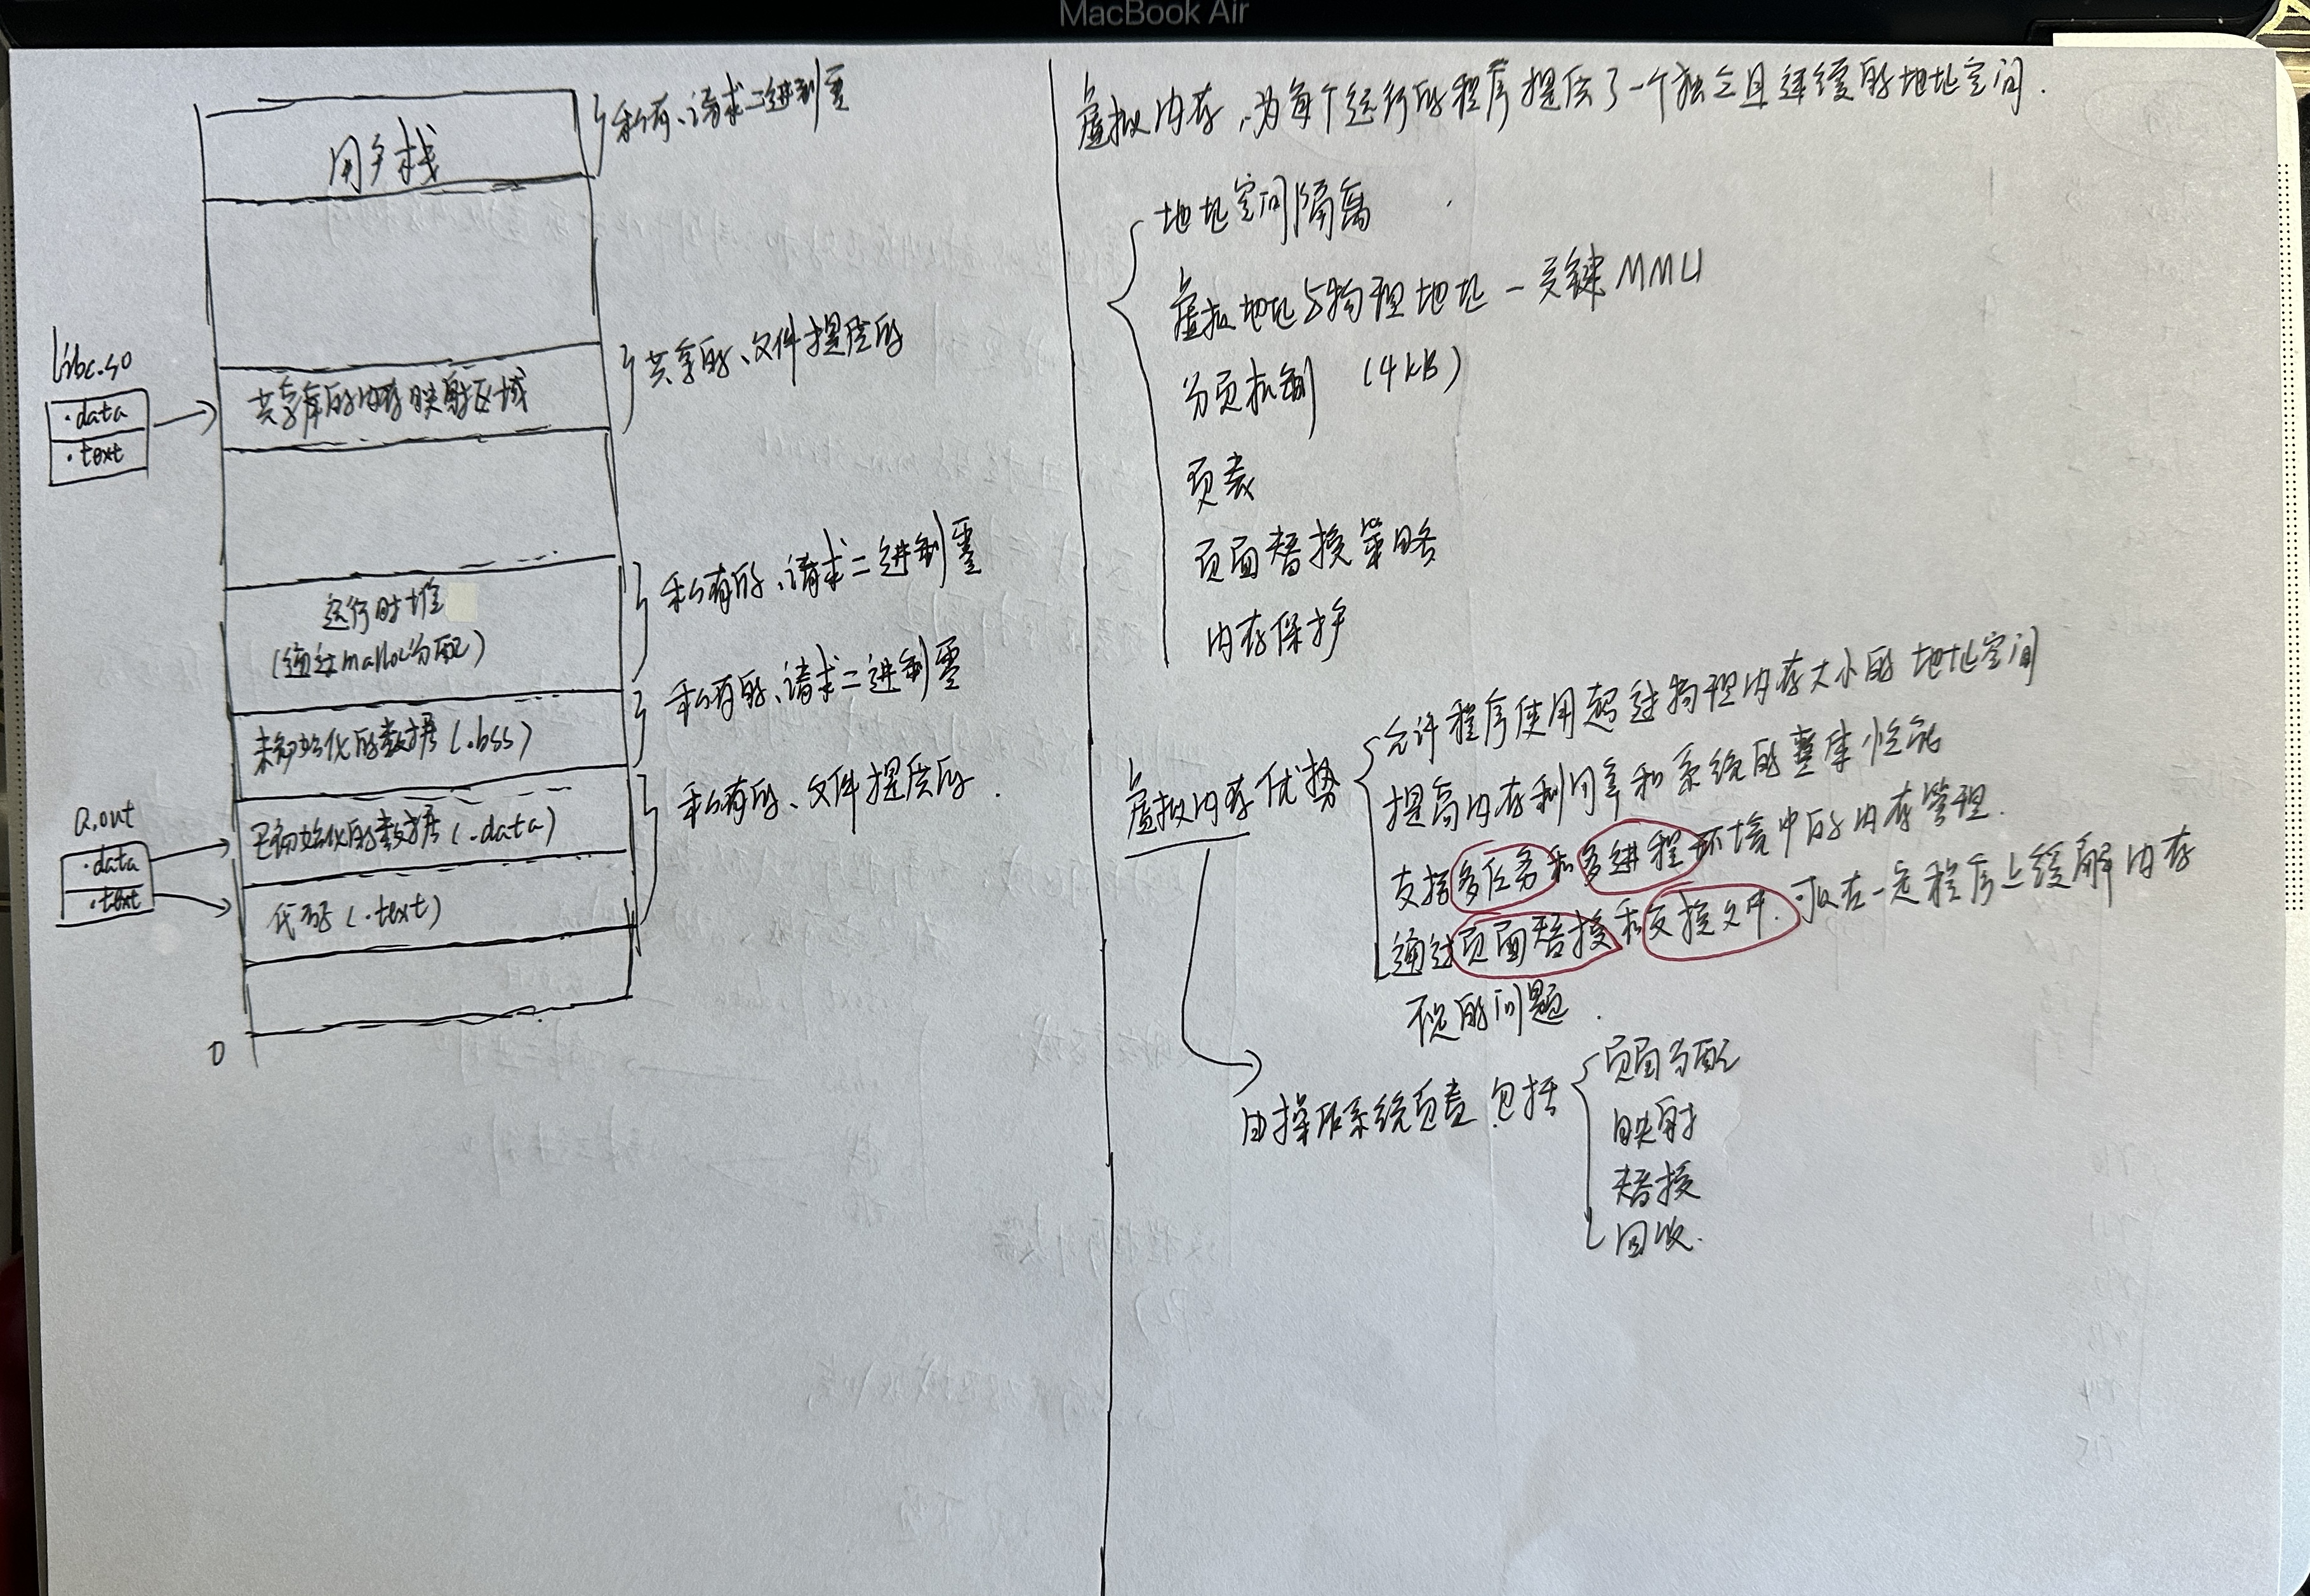 MacBook Air
用户栈
私有、请求二进制零
libc.so
.data
.text
共享库的内存映射区域
共享的、文件提供的
运行时堆
(通过malloc分配)
私有的、请求二进制零
未初始化的数据(.bss)
私有的、请求二进制零
a.out
.data
.text
已初始化的数据(.data)
代码(.text)
私有的、文件提供的.
0
虚拟内存,为每个运行的程序提供了一个独立且连续的地址空间.
地址空间隔离
虚拟地址与物理地址-关键MMU
分页机制 (4KB)
页表
页面替换策略
内存保护
虚拟内存优势
允许程序使用超过物理内存大小的地址空间
提高内存利用率和系统的整体性能
支持多任务和多进程环境中的内存管理.
通过页面替换和交换文件.可以在一定程序上缓解内存
不足的问题.
由操作系统负责.包括
页面分配
映射
替换
回收.